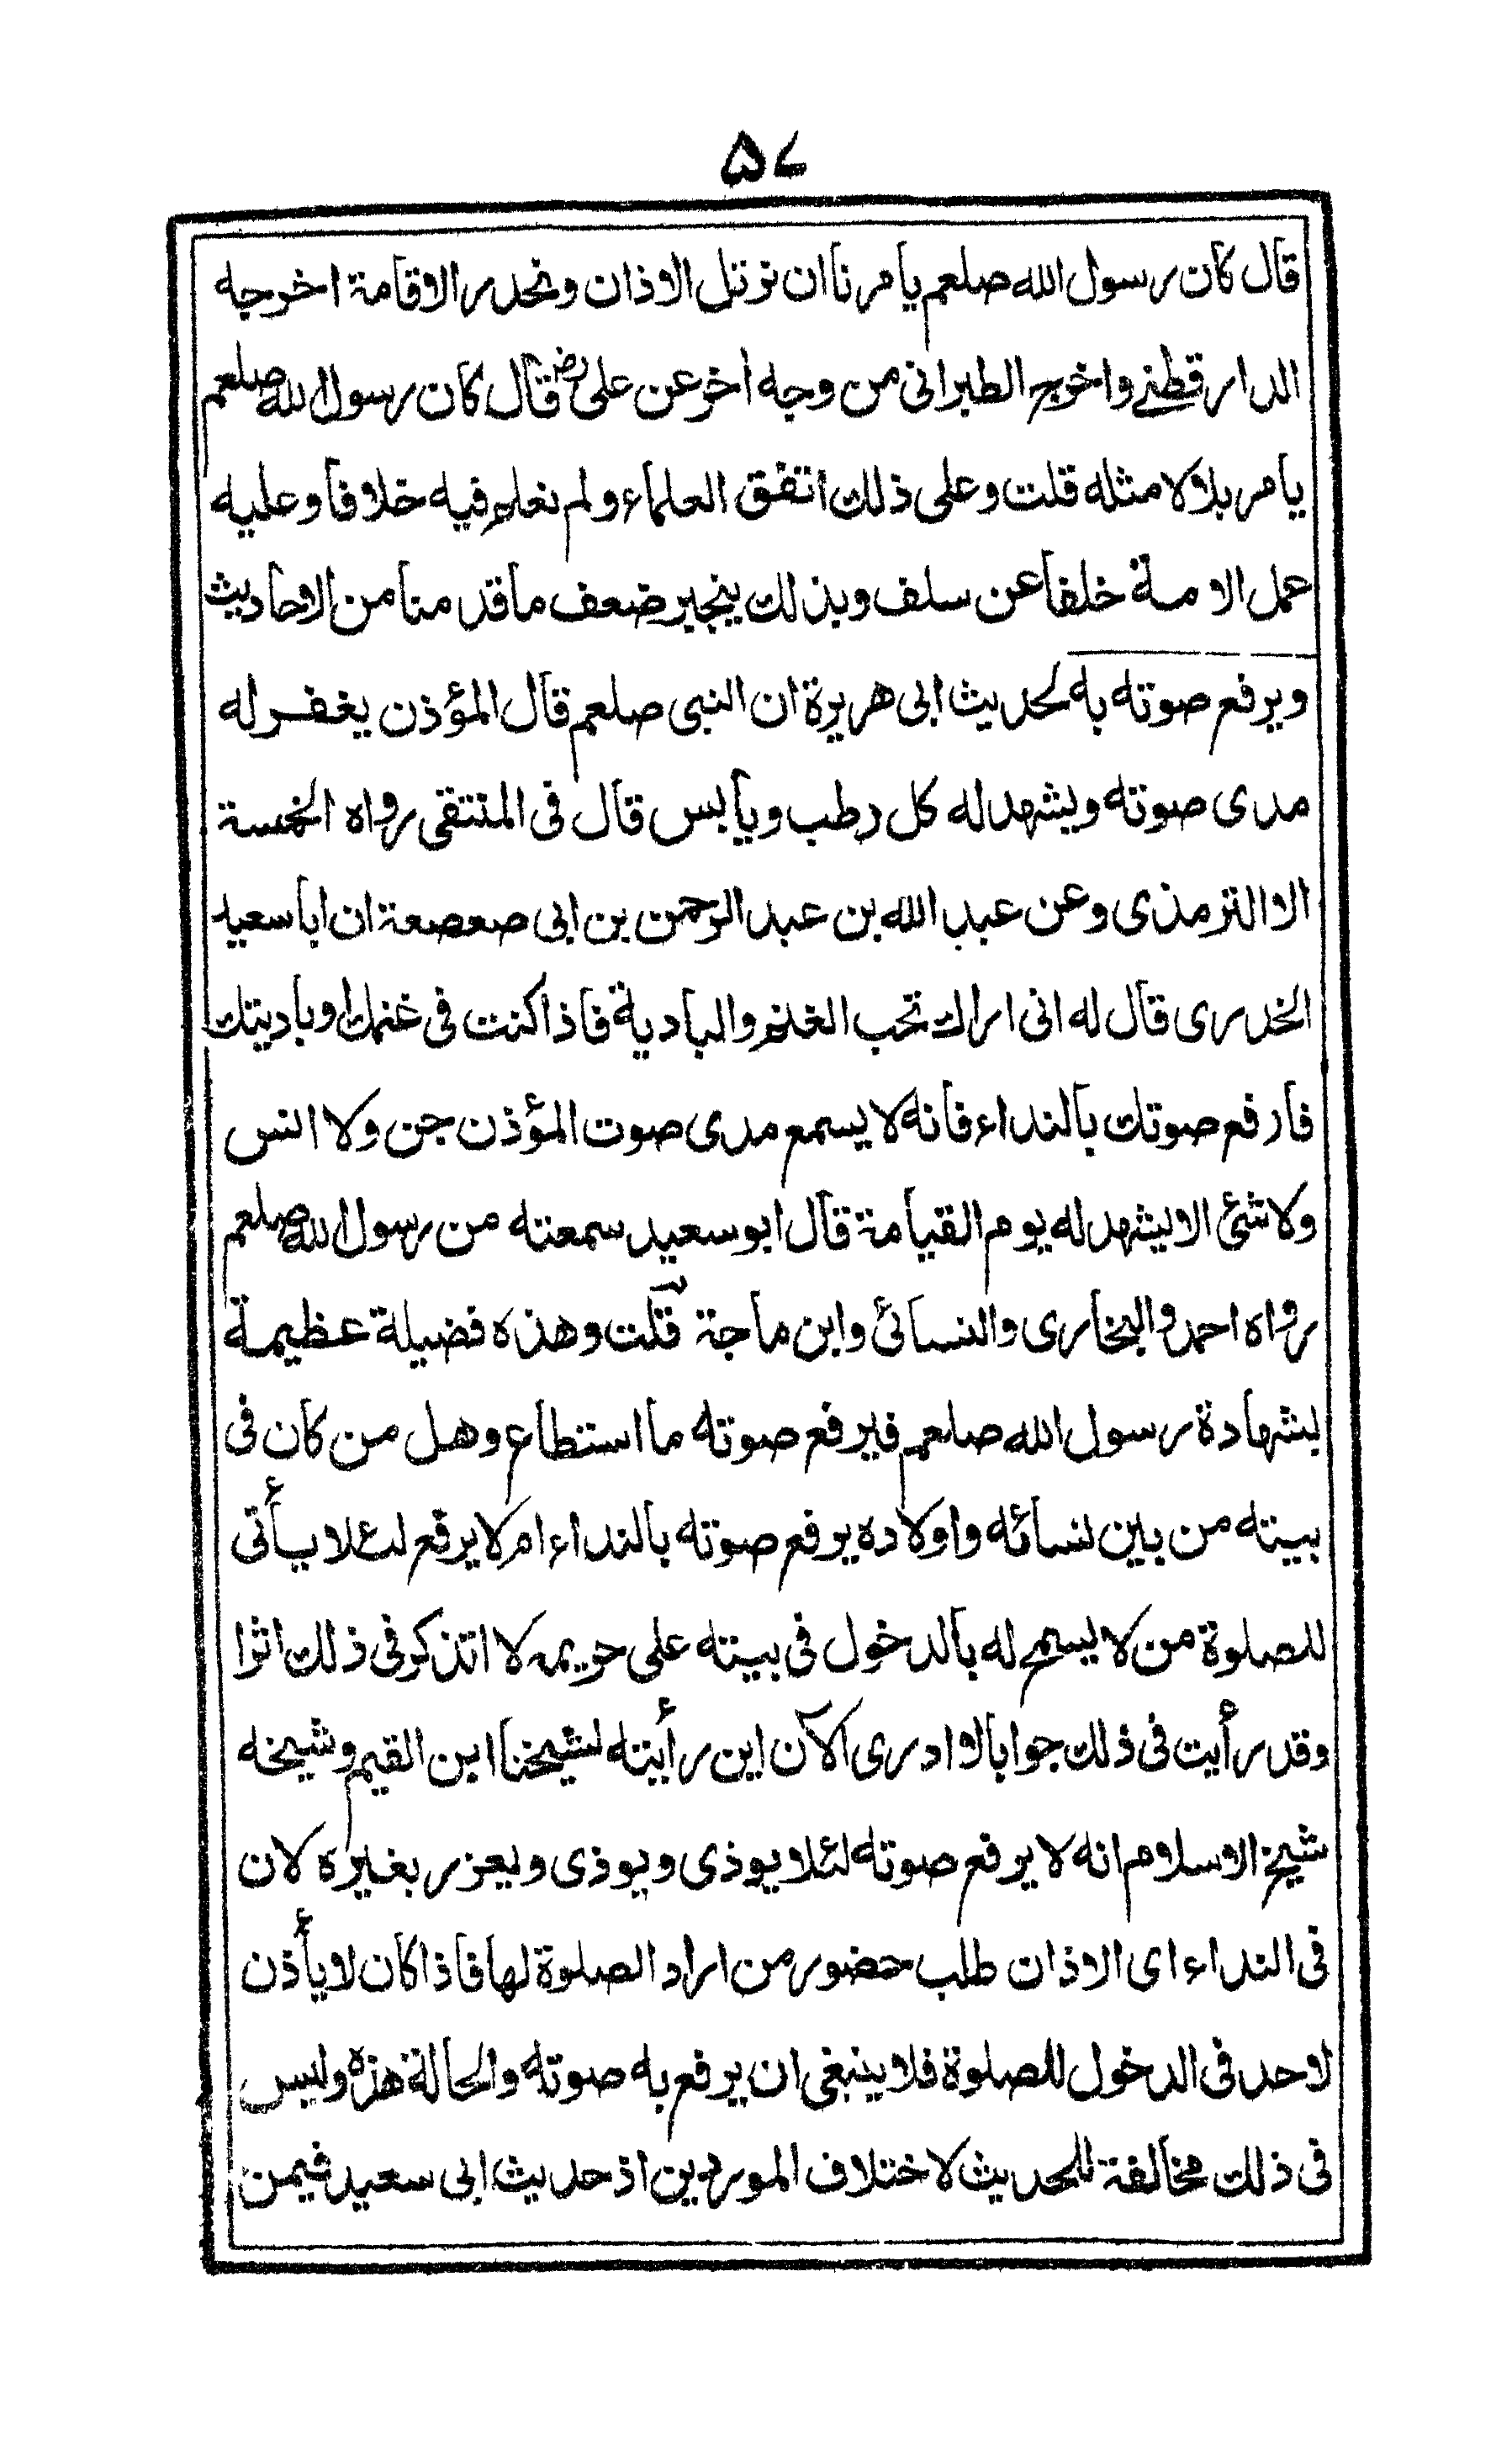 ۵۷
قال كان رسول الله صلعم يامرنا ان نرتل الاذان ونحدر الاقامة اخرجه
الدارقطني واخرج الطبرانى من وجه اخر عن على رض قال كان رسول الله صلعم
يامر بلالا مثله قلت وعلى ذلك اتفق العلماء ولم نعلم فيه خلافا وعليه
عمل الامة خلفا عن سلف وبذلك ينجبر ضعف ما قدمنا من الاحاديث
ويرفع صوته به لحديث ابى هريرة ان النبى صلعم قال المؤذن يغفر له
مدى صوته ويشهد له كل رطب ويابس قال فى المنتقى رواه الخمسة
الا الترمذى وعن عبد الله بن عبد الرحمن بن ابى صعصعة ان ابا سعيد
الخدرى قال له انى اراك تحب الغنم والبادية فاذا كنت فى غنمك او باديتك
فارفع صوتك بالنداء فانه لا يسمع مدى صوت المؤذن جن ولا انس
ولا شئ الا يشهد له يوم القيامة قال ابو سعيد سمعته من رسول الله صلعم
رواه احمد والبخارى والنسائى وابن ماجة قلت وهذه فضيلة عظيمة
بشهادة رسول الله صلعم فيرفع صوته ما استطاع وهل من كان فى
بيته من بين نسائه واولاده يرفع صوته بالنداء ام لا يرفع لئلا يأتى
للصلوة من لا يسمح له بالدخول فى بيته على حريمه لا اتذكر فى ذلك اثرا
وقد رأيت فى ذلك جوابا لا ادرى الآن اين رأيته لشيخنا ابن القيم وشيخه
شيخ الاسلام انه لا يرفع صوته لئلا يوذى ويوذى ويعزر بغيره لان
فى النداء اى الاذان طلب حضور من اراد الصلوة لها فاذا كان لا يأذن
لاحد فى الدخول للصلوة فلا ينبغى ان يرفع به صوته والحالة هذه وليس
فى ذلك مخالفة للحديث لاختلاف الموردين اذ حديث ابى سعيد فيمن